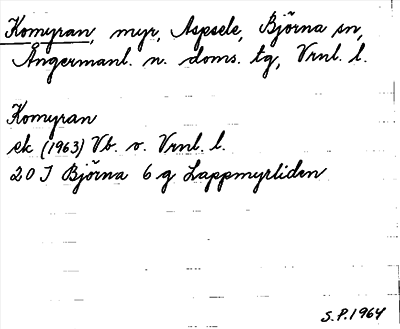 Komyran, myr, Aspsele, Björna sn,
Ångermanl. n. doms. tg, Vrnl. l.
Komyran
ek (1963) Vb. o. Vrnl. l.
20 J Björna 6 g Lappmyrliden
S.P. 1964